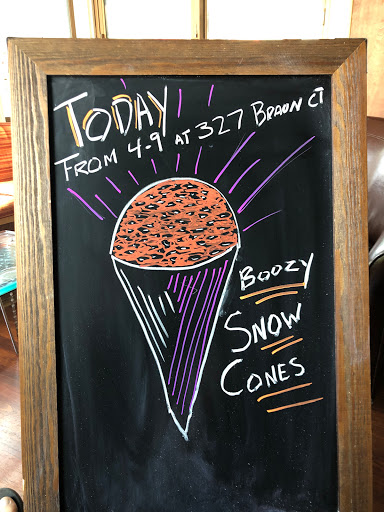 TODAY
FROM 4-9 AT 327 BRAUN CT
BOOZY
SNOW
CONES